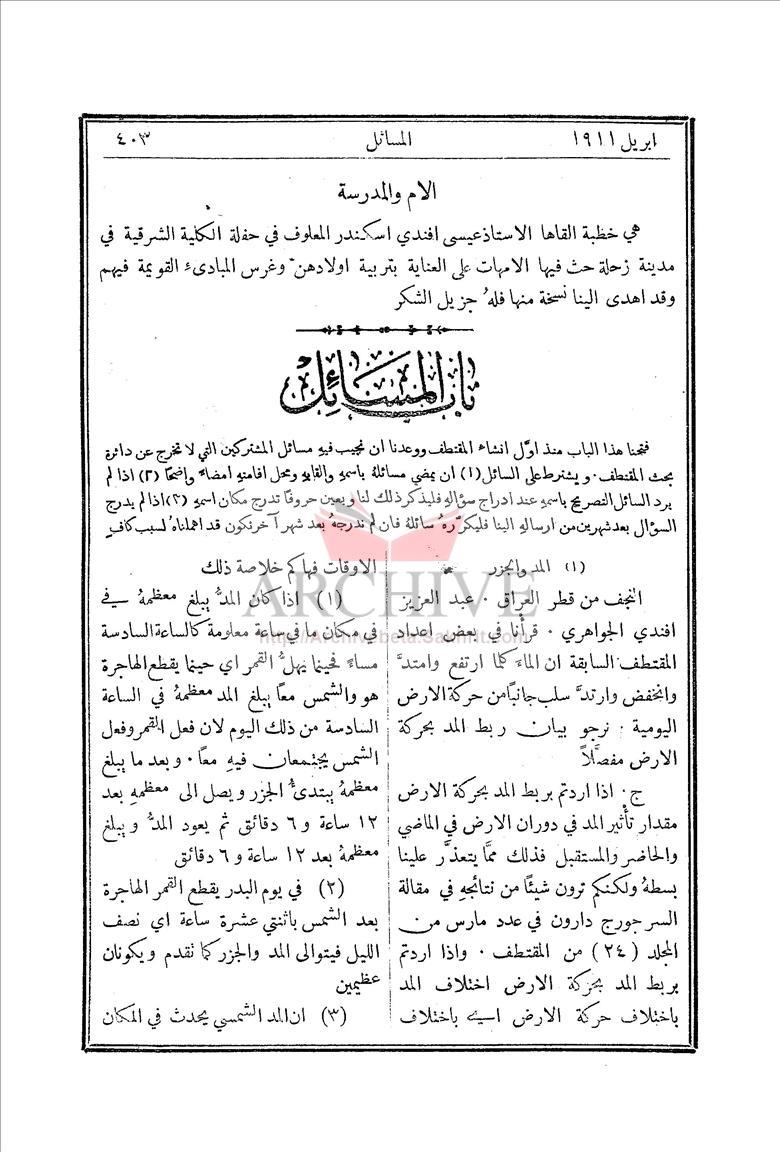 ابريل ١٩١١
المسائل
٤٠٣
الام والمدرسة
هي خطبة القاها الاستاذ عيسى افندي اسكندر المعلوف في حفلة الكلية الشرقية في
مدينة زحلة حث فيها الامهات على العناية بتربية اولادهنَّ وغرس المبادىء القويمة فيهم
وقد اهدى الينا نسخة منها فلهُ جزيل الشكر
باب المسائل
فتحنا هذا الباب منذ اوَّل انشاء المقتطف ووعدنا ان نجيب فيه مسائل المشتركين التي لا تخرج عن دائرة
بحث المقتطف . ويشترط على السائل (١) ان يمضي مسائلهُ باسمهِ والقابهِ ومحل اقامتهِ امضاءً واضحًا (٢) اذا لم
يرد السائل التصريح باسمهِ عند ادراج سؤالهِ فليذكر ذلك لنا ويعين حروفًا تدرج مكان اسمهِ (٣) اذا لم يدرج
السؤال بعد شهرين من ارسالهِ الينا فليكرّرهُ سائلهُ فان لم ندرجهُ بعد شهر آخر نكون قد اهملناهُ لسبب كافٍ
(١) المد والجزر
النجف من قطر العراق . عبد العزيز
افندي الجواهري . قرأْنا في بعض اعداد
المقتطف السابقة ان الماءَ كما ارتفع وامتدَّ
وانخفض وارتدَّ سلب جانبًا من حركة الارض
اليومية . نرجو بيان ربط المد بحركة
الارض مفصَّلاً
ج . اذا اردتم بربط المد بحركة الارض
مقدار تأْثير المد في دوران الارض في الماضي
والحاضر والمستقبل فذلك ممَّا يتعذَّر علينا
بسطهُ ولكنكم ترون شيئًا من نتائجهِ في مقالة
السر جورج دارون في عدد مارس من
المجلد (٢٤) من المقتطف . واذا اردتم
بربط المد بحركة الارض اختلاف المد
باختلاف حركة الارض اي باختلاف
الاوقات فهاكم خلاصة ذلك
(١) اذا كان المدُّ يبلغ معظمهُ في
في مكان ما في ساعة معلومة كالساعة السادسة
مساءً فحينما يهلُّ القمر اي حينما يقطع الهاجرة
هو والشمس معًا يبلغ المد معظمهُ في الساعة
السادسة من ذلك اليوم لان فعل القمر وفعل
الشمس يجتمعان فيهِ معًا . وبعد ما يبلغ
معظمهُ يبتدئُ الجزر ويصل الى معظمهِ بعد
١٢ ساعة و ٦ دقائق ثم يعود المدُّ ويبلغ
معظمهُ بعد ١٢ ساعة و ٦ دقائق
(٢) في يوم البدر يقطع القمر الهاجرة
بعد الشمس باثنتي عشرة ساعة اي نصف
الليل فيتوالى المد والجزر كما تقدم ويكونان
عظيمين
(٣) ان المد الشمسي يحدث في المكان
ARCHIVE